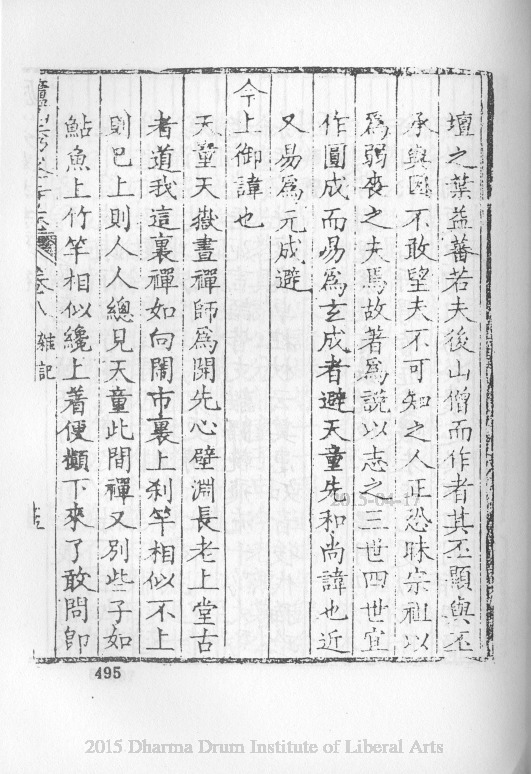 壇之葉益蕃若夫後山僧而作者其丕顯與丕
承與固不敢望夫不可知之人正恐昧宗祖以
為弱喪之夫焉故著為說以志之三世四世宜
作圓成而易為玄成者避天童先和尚諱也近
又易為元成避
今上御諱也
天童天嶽晝禪師為開先心壁淵長老上堂古
者道我這裏禪如向鬧市裏上剎竿相似不上
則已上則人人總見天童此間禪又別些子如
鮎魚上竹竿相似纔上著便攧下來了敢問卽
卷八 雜記
2015-04-17
495
2015 Dharma Drum Institute of Liberal Arts